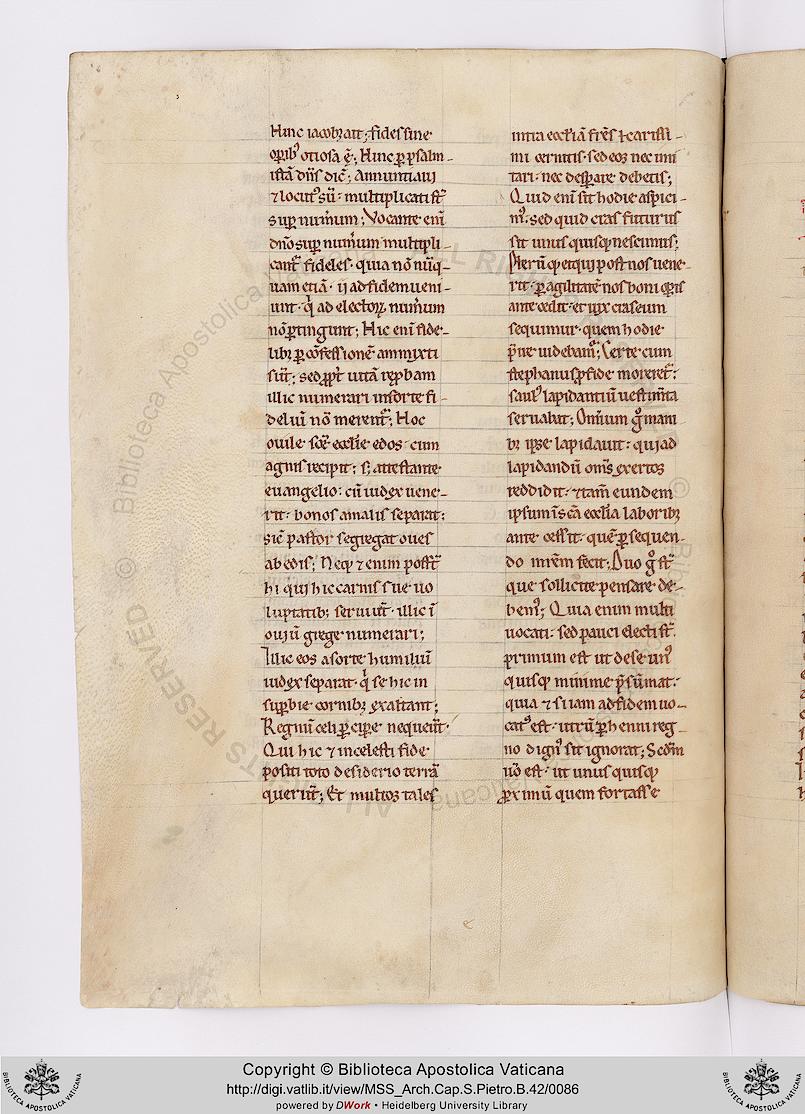 Hinc iacob̄ ait; fides sine
oꝑib᷒ otiosa ē; Hinc ꝑ psalm-
istā dn̄s dic̄; Annuntiaui
⁊ locut᷒ sū· multiplicati sт̄
sup̱ num̄um; Vocante eni̅
dn̄o sup̱ num̄um multipli
cant̄ fideles· quia nō nūq-
uam etiā· ii ad fidem ueni-
unt· qͥ ad electoꝝ num̄um
nō ꝑtingunt; Hic eni̅ fide-
lib; ꝑ cōfessionē ammixti
sūt; sed ꝓpt̄ uitā rep̱bam
illic numerari in sorte fi-
deliū nō merent̄; Hoc
ouile sc̄e eccl̄ie edos cum
agnis recipit; s; attestante
euangelio: cū iudex uene-
rit· bonos a malis separat;
sic̄ pastor segregat oues
ab edis; Neq; ⁊ enim poss̄t
hi qui hic carnis sue uo
luptatib; seruiūt· illic ī
ouiū grege numerari;
Illic eos a sorte humiliū
iudex separat· qͥ se hic in
sup̱bie cornib; exaltant;
Regnū celi ꝑcipere nequeūt·
Qui hic ⁊ in celesti fide
positi toto desiderio terrā
querūt; Et multos tales
intra eccl̄iā fr̄es k̄arissi-
mi cernitis· sed eos nec imi
tari· nec desꝑare debetis;
Quid eni̅ sit hodie aspici-
m᷒· sed quid cras futurus
sit unus quisq; nescimus;
Pleꝝq; et qui post nos uene-
rit· ꝑ agilitatē nos boni oꝑis
ante cedit· et uix cras eum
sequimur· quem hodie
p̄ire uidebam᷒; Certe cum
stephanus ꝓ fide moreret̄:
saul᷒ lapidantiū uestim̄ta
seruabat; Omnium gͦ mani
b; ipse lapidauit: qui ad
lapidandū om̄s exertos
reddidit· ⁊ tam̄ eundem
ipsum ī sc̄a eccl̄ia laborib;
ante cessit· quē ꝑsequen-
do mr̄em fecit; Duo gͦ sт̄
que sollicite pensare de-
bem᷒; Quia enim multi
uocati· sed pauci electi sт̄·
primum est ut de se un᷒
quisq; minime p̄sumat·
quia ⁊ si iam ad fidem uo-
cat᷒ est· utrū ꝑhenni reg-
no dign᷒ sit ignorat; Scdm̄
uͦ est· ut unus quisq;
ꝓximū quem fortasse
Copyright © Biblioteca Apostolica Vaticana
http://digi.vatlib.it/view/MSS_Arch.Cap.S.Pietro.B.42/0086
powered by DWork • Heidelberg University Library